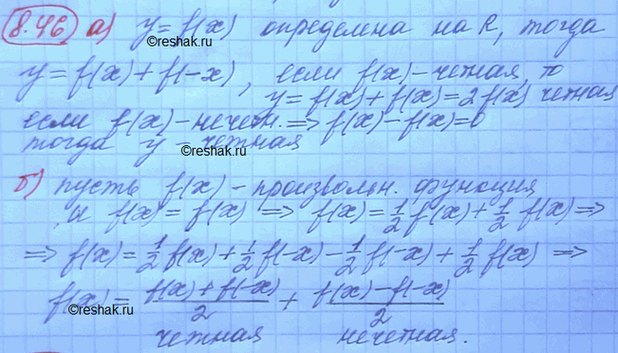 8.46 а) y = f(x) определена на R, тогда
©reshak.ru
y = f(x) + f(-x), если f(x) - четная, то
y = f(x) + f(x) = 2f(x) четная
если f(x) - нечетн. ⇒ f(x) - f(x) = 0
тогда y - четная
©reshak.ru
б) пусть f(x) - произвольн. функция
, и f(x) = f(x) ⇒ f(x) = 1/2 f(x) + 1/2 f(x) ⇒
⇒ f(x) = 1/2 f(x) + 1/2 f(-x) - 1/2 f(-x) + 1/2 f(x) ⇒
f(x) = (f(x) + f(-x))/2 + (f(x) - f(-x))/2
©reshak.ru
четная нечетная.